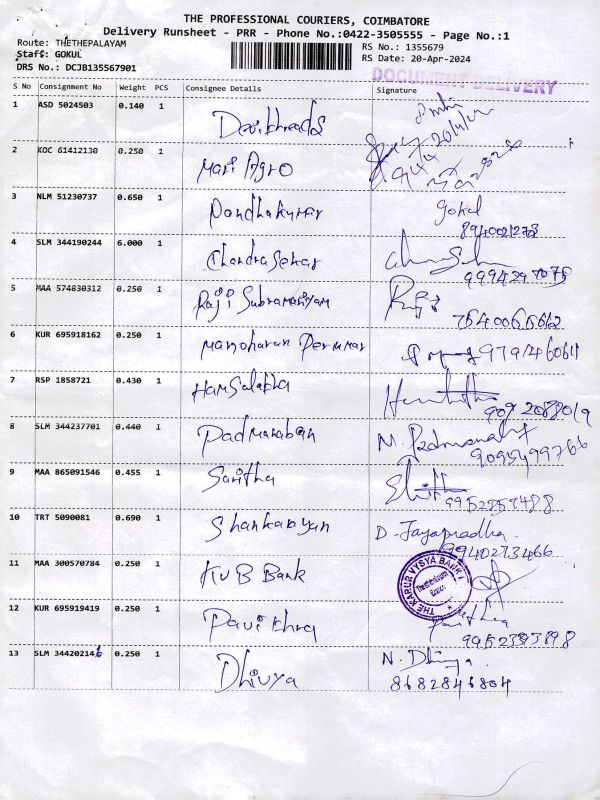 THE PROFESSIONAL COURIERS, COIMBATORE
Delivery Runsheet - PRR - Phone No.:0422-3505555 - Page No.:1
Route: THETHEPALAYAM
RS No.: 1355679
Staff: GOKUL
RS Date: 20-Apr-2024
DRS No.: DCJB135567901
DOCUMENT DELIVERY
S No Consignment No Weight PCS Consignee Details Signature
1 ASD 5024503 0.140 1 Devithreads
2 KOC 61412130 0.250 1 Mari Agro
3 NLM 51230737 0.650 1 Nandhakumar Gokul
8940021278
4 SLM 344190244 6.000 1 Chandrasekar
9994297075
5 MAA 574830312 0.250 1 Raji Subramaniyam
6 KUR 695918162 0.250 1 Manoharan Perumar
7 RSP 1858721 0.430 1 Hamsalatha
8 SLM 344237701 0.440 1 Padmanaban
9095499766
9 MAA 865091546 0.455 1 Saritha
10 TRT 5090081 0.690 1 Shankarayan D. Jayapradha.
9940273466
11 MAA 300570784 0.250 1 KVB Bank THE KARUR VYSYA BANK
12 KUR 695919419 0.250 1 Pavithra
13 SLM 344202146 0.250 1 Dhivya N. Dhivya
8682846804